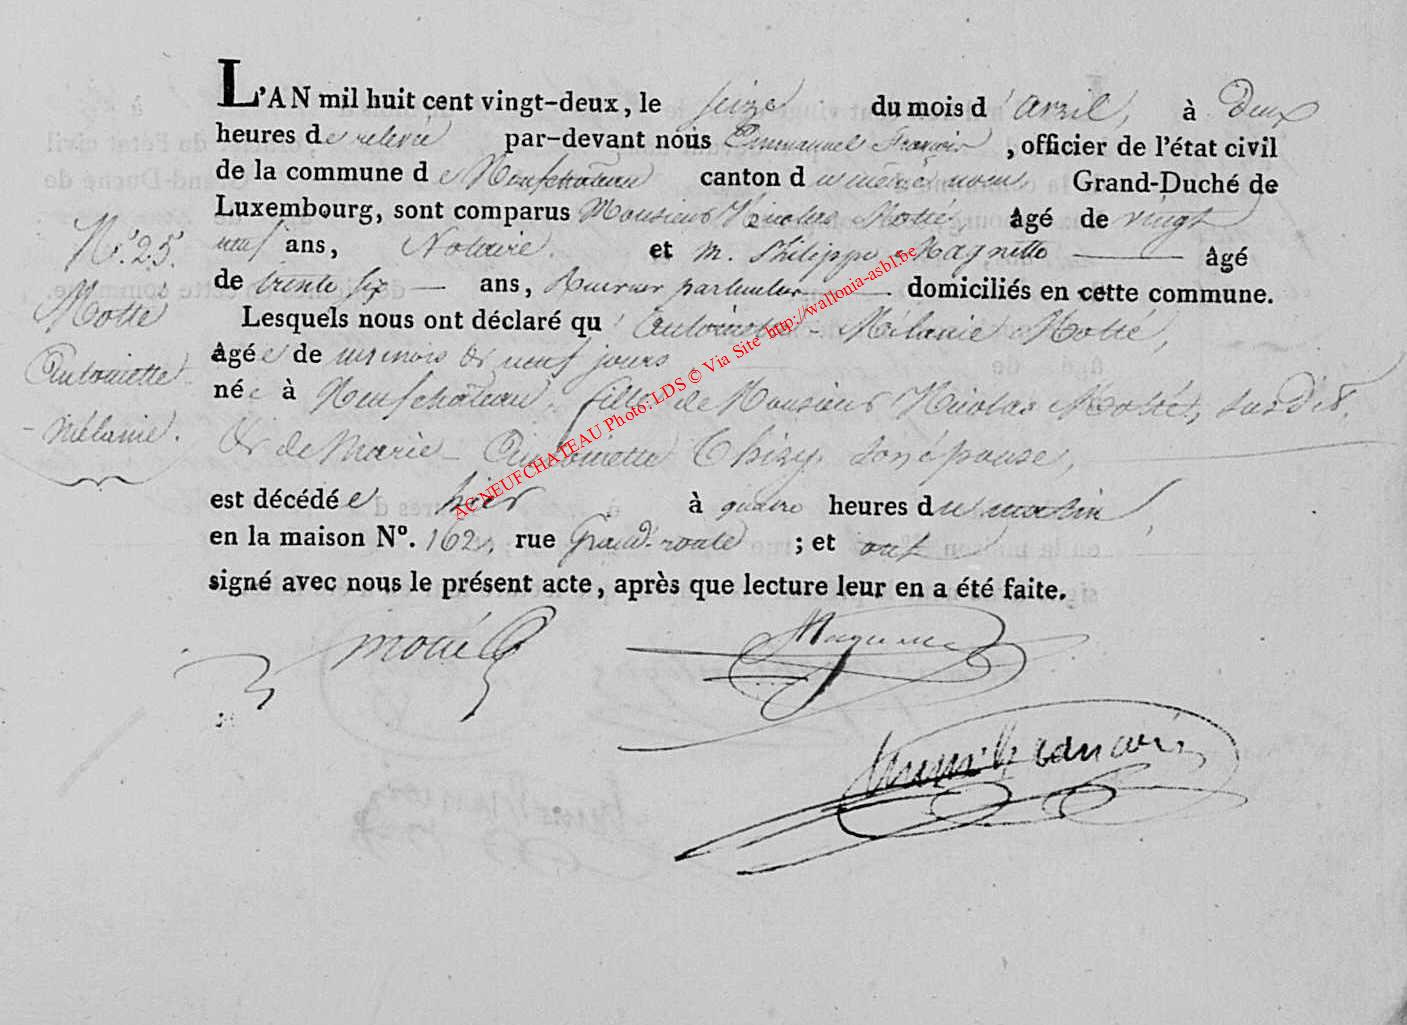 L'AN mil huit cent vingt-deux, le seize du mois d'avril, à deux
heures de relevée par-devant nous Emmanuel François, officier de l'état civil
de la commune de Neufchateau canton du même nom Grand-Duché de
Luxembourg, sont comparus Monsieur Nicolas Motté âgé de vingt
neuf ans, Notaire. et M. Philippe Magnette âgé
de trente six ans, particulier domiciliés en cette commune.
Lesquels nous ont déclaré qu'Antoinette-Mélanie Motté,
âgée de mois & neuf jours
née à Neufchâteau, fille de Monsieur Nicolas Motté, susdit,
& de Marie-Antoinette Thiry, son épouse,
est décédée hier à quatre heures du matin,
en la maison N°. 162, rue Grand-route ; et ont
signé avec nous le présent acte, après que lecture leur en a été faite.
N.° 25.
Motté
Antoinette-
-Mélanie.
Motté
Magnette
François
AC NEUFCHATEAU Photo: LDS © Via Site http://wallonia-asbl.be